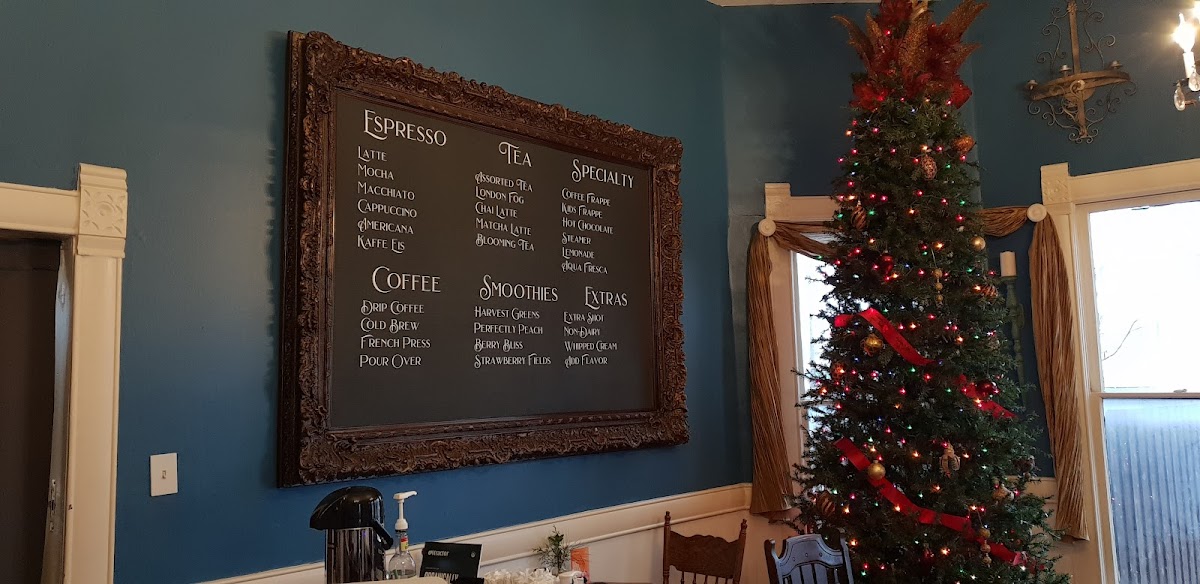 Espresso
Latte
Mocha
Macchiato
Cappuccino
Americana
Kaffe Eis
Tea
Assorted Tea
London Fog
Chai Latte
Matcha Latte
Blooming Tea
Specialty
Coffee Frappe
Kids Frappe
Hot Chocolate
Steamer
Lemonade
Aqua Fresca
Coffee
Drip Coffee
Cold Brew
French Press
Pour Over
Smoothies
Harvest Greens
Perfectly Peach
Berry Bliss
Strawberry Fields
Extras
Extra Shot
Non-Dairy
Whipped Cream
Add Flavor